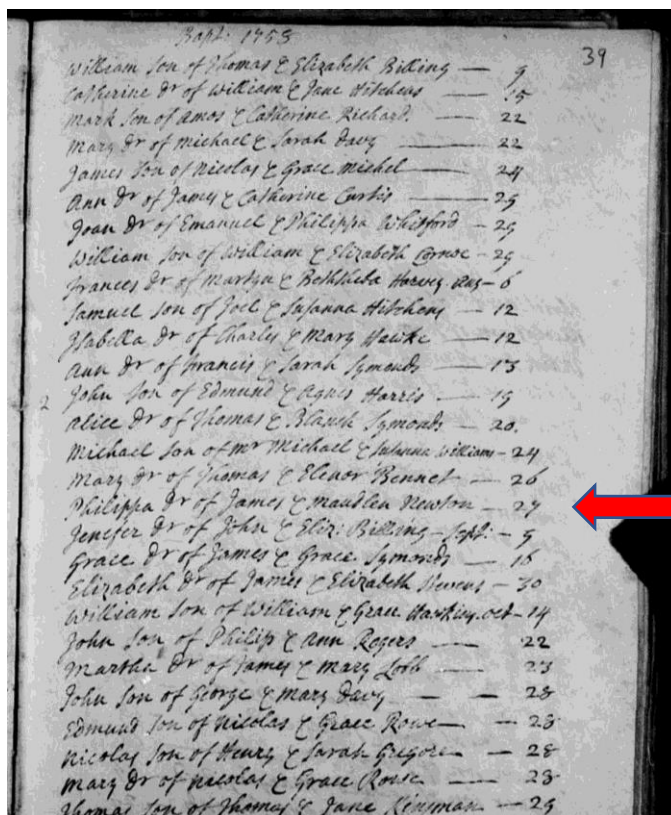 Bapt: 1753
39
William Son of Thomas & Elizabeth Billing — 9
Catherine Dr of William & Jane Hitchens — 15
Mark Son of Amos & Catherine Richard — 22
Mary Dr of Michael & Sarah Davy — 22
James Son of Nicolas & Grace Michel — 24
Ann Dr of James & Catherine Curtis — 29
Joan Dr of Emanuel & Philippa Whitford — 29
William Son of William & Elizabeth — 29
Frances Dr of Martyn & Bethsheba Harvey Aug — 6
Samuel Son of Joel & Susanna Hitchens — 12
Isabella Dr of Charles & Mary — 12
Ann Dr of Francis & Sarah Symonds — 13
John Son of Edmund & Agnes Harris — 19
2
Alice Dr of Thomas & Blanch Symonds — 20
Michael Son of Mr Michael & Susanna Williams — 24
Mary Dr of Thomas & Elenor Bennet — 26
Philippa Dr of James & Maudlen Newton — 27
Jenefer Dr of John & Eliz: Billing — Sept: — 9
Grace Dr of James & Grace Symonds — 16
Elizabeth Dr of James & Elizabeth Stevens — 30
William Son of William & Grace Oct — 14
John Son of Philip & Ann Rogers — 22
Martha Dr of James & Mary Lobb — 23
John Son of George & Mary Davy — — 28
Edmund Son of Nicolas & Grace Rowe — 28
Nicolas Son of Henry & Sarah — 28
Mary Dr of Nicolas & Grace Rowse — 28
Thomas Son of Thomas & Jane Kinsman — 29